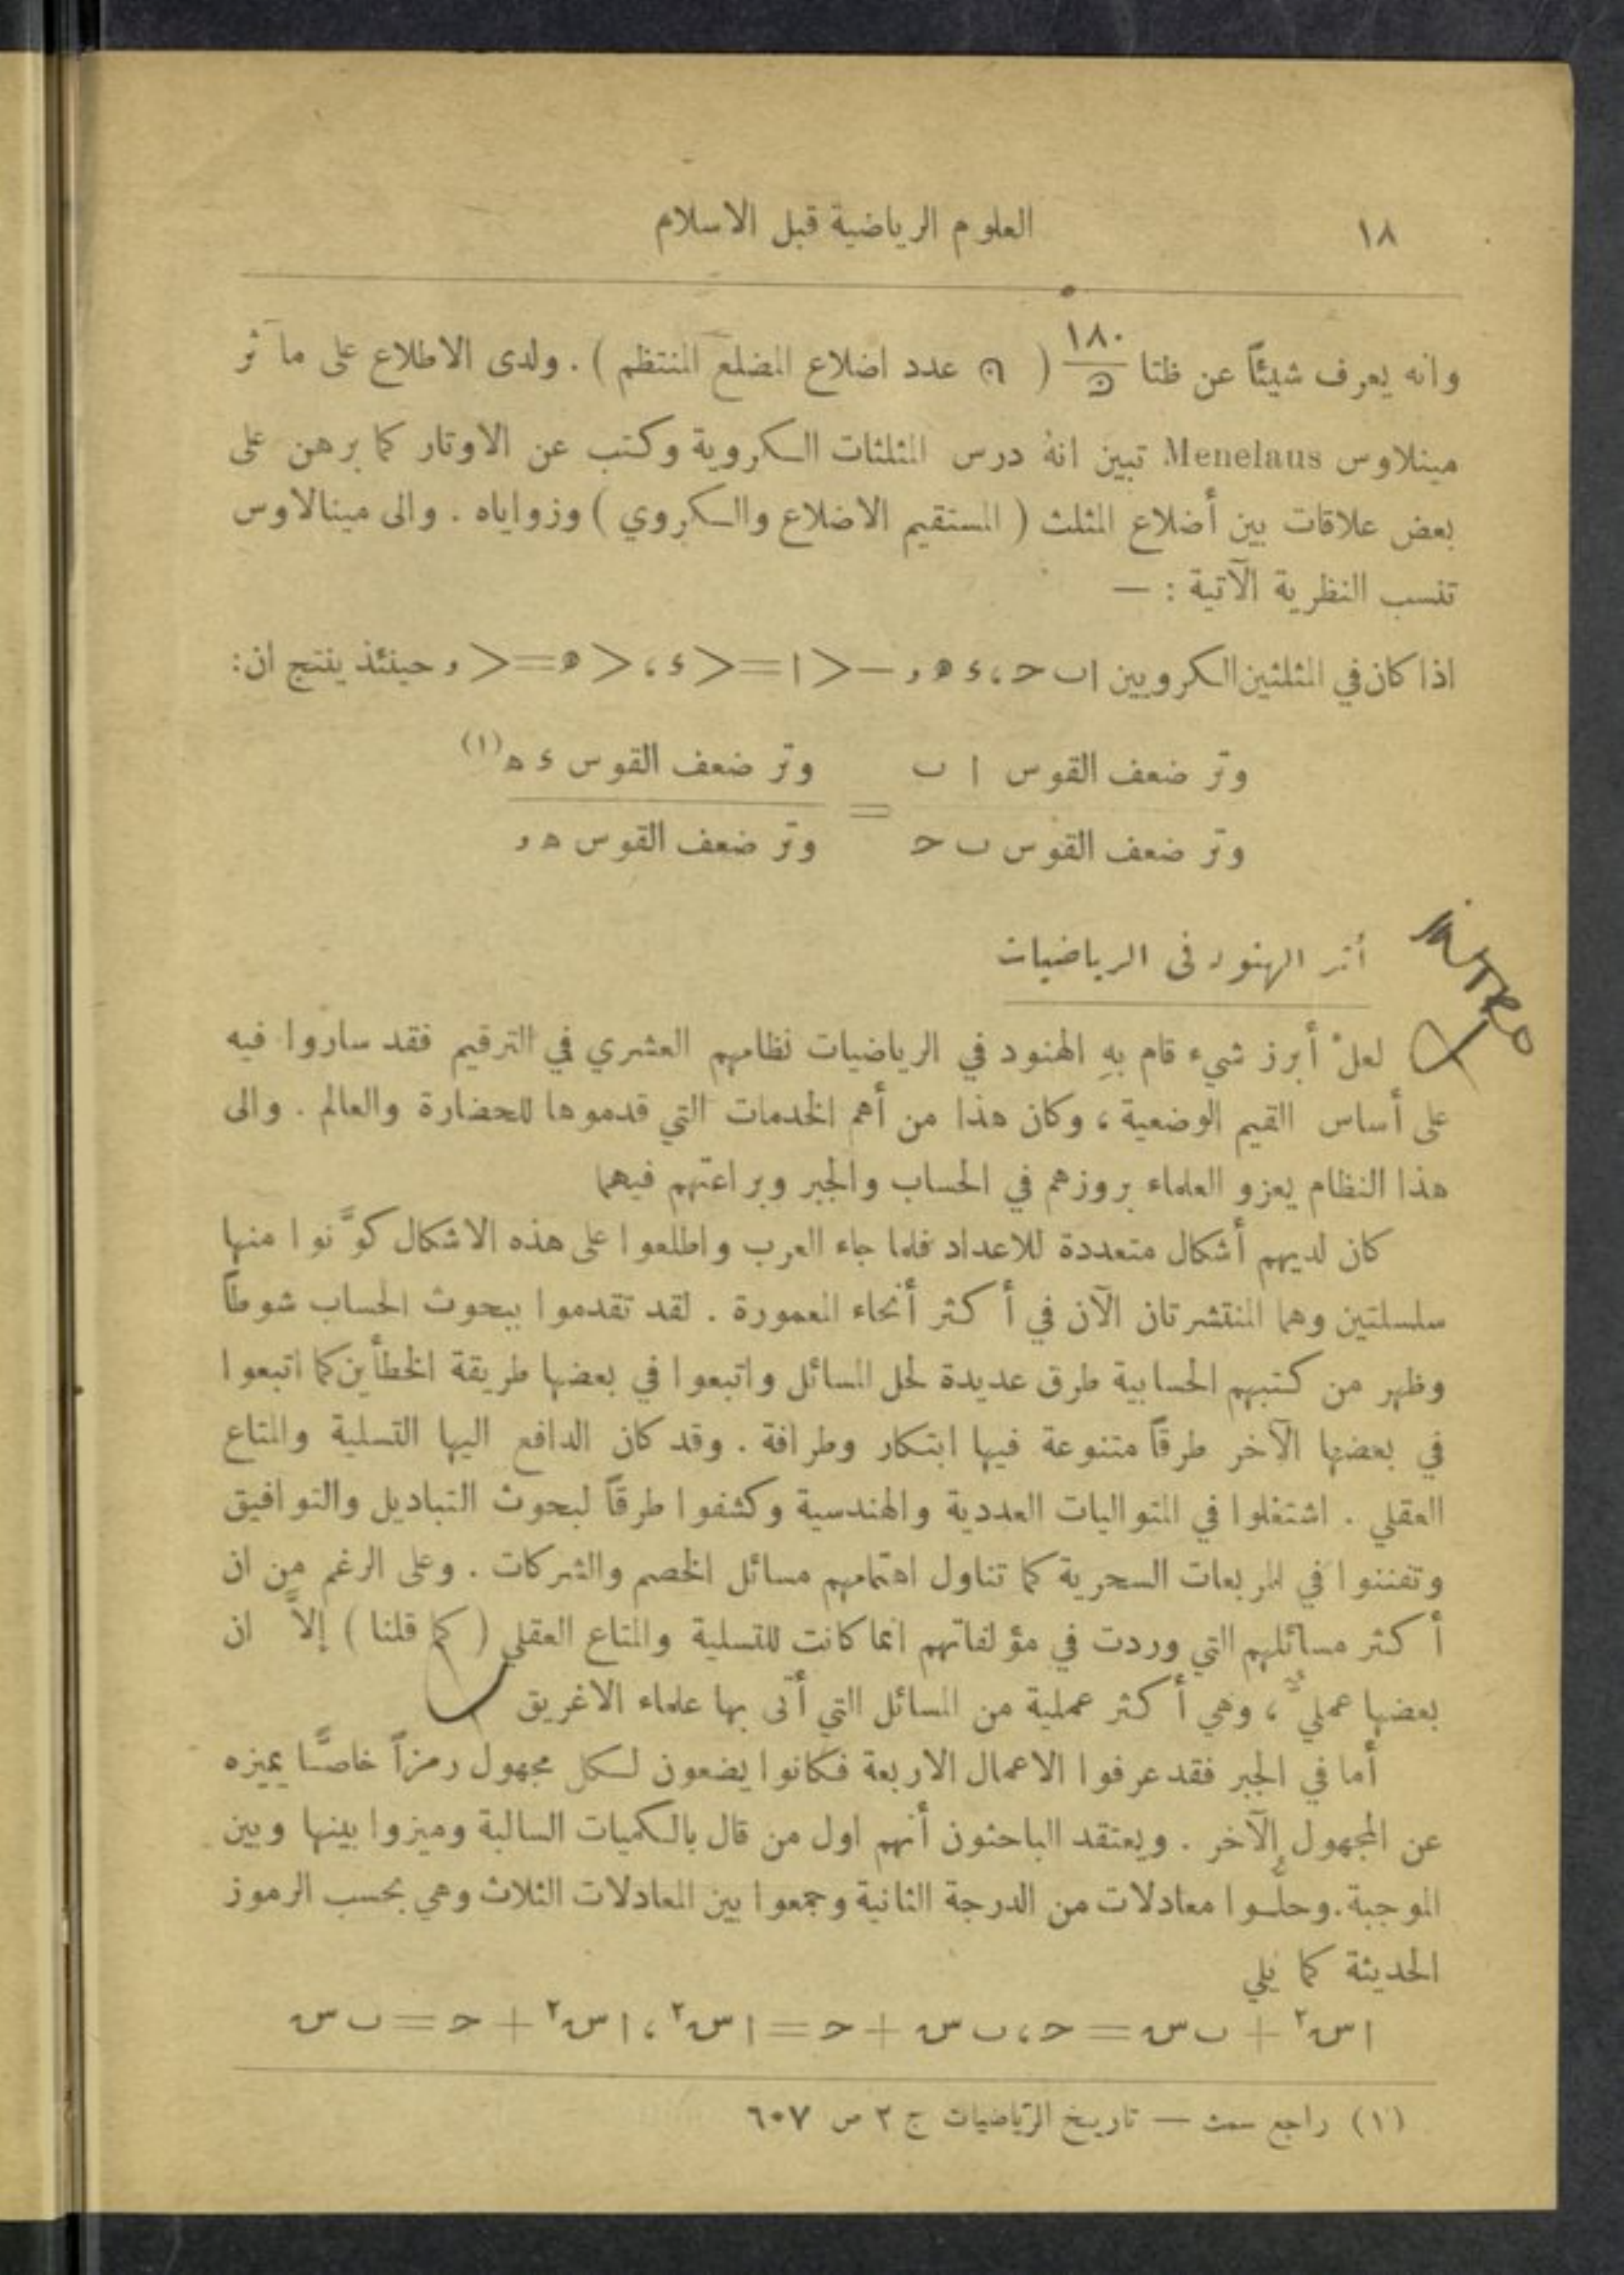 ١٨ العلوم الرياضية قبل الاسلام
وانه يعرف شيئاً عن ظتا ١٨٠/ن ( ن عدد اضلاع المضلع المنتظم ) . ولدى الاطلاع على مآثر
مينلاوس Menelaus تبين انهُ درس المثلثات الكروية وكتب عن الاوتار كما برهن على
بعض علاقات بين أضلاع المثلث ( المستقيم الاضلاع والكروي ) وزواياه . والى مينالاوس
تنسب النظرية الآتية : —
اذا كان في المثلثين الكرويين ا ب ح ، ء ه و — < ا = < ء ، < ه = < و حينئذ ينتج ان :
وتر ضعف القوس ا ب / وتر ضعف القوس ب ح = وتر ضعف القوس ء ه / وتر ضعف القوس ه و (١)
أثر الهنود فى الرياضيات
لعلْ أبرز شيء قام بهِ الهنود في الرياضيات نظامهم العشري في الترقيم فقد ساروا فيه
على أساس القيم الوضعية ، وكان هذا من أهم الخدمات التي قدموها للحضارة والعالم . والى
هذا النظام يعزو العلماء بروزهم في الحساب والجبر وبراعتهم فيهما
كان لديهم أشكال متعددة للاعداد فلما جاء العرب واطلعوا على هذه الاشكال كوَّنوا منها
سلسلتين وهما المنتشرتان الآن في أكثر أنحاء المعمورة . لقد تقدموا ببحوث الحساب شوطاً
وظهر من كتبهم الحسابية طرق عديدة لحل المسائل واتبعوا في بعضها طريقة الخطأين كما اتبعوا
في بعضها الآخر طرقاً متنوعة فيها ابتكار وطرافة . وقد كان الدافع اليها التسلية والمتاع
العقلي . اشتغلوا في المتواليات العددية والهندسية وكشفوا طرقاً لبحوث التباديل والتوافيق
وتفننوا في المربعات السحرية كما تناول اهتمامهم مسائل الخصم والشركات . وعلى الرغم من ان
أكثر مسائلهم التي وردت في مؤلفاتهم انما كانت للتسلية والمتاع العقلي ( كما قلنا ) إلاَّ ان
بعضها عمليٌّ ، وهي أكثر عملية من المسائل التي أتى بها علماء الاغريق
أما في الجبر فقد عرفوا الاعمال الاربعة فكانوا يضعون لكل مجهول رمزاً خاصًّا يميزه
عن المجهول الآخر . ويعتقد الباحثون أنهم اول من قال بالكميات السالبة وميزوا بينها وبين
الموجبة . وحلُّوا معادلات من الدرجة الثانية وجمعوا بين المعادلات الثلاث وهي بحسب الرموز
الحديثة كما يلي
ا س٢ + ب س = ح ، ب س + ح = ا س٢ ، ا س٢ + ح = ب س
(١) راجع سمث — تاريخ الرياضيات ج ٢ ص ٦٠٧